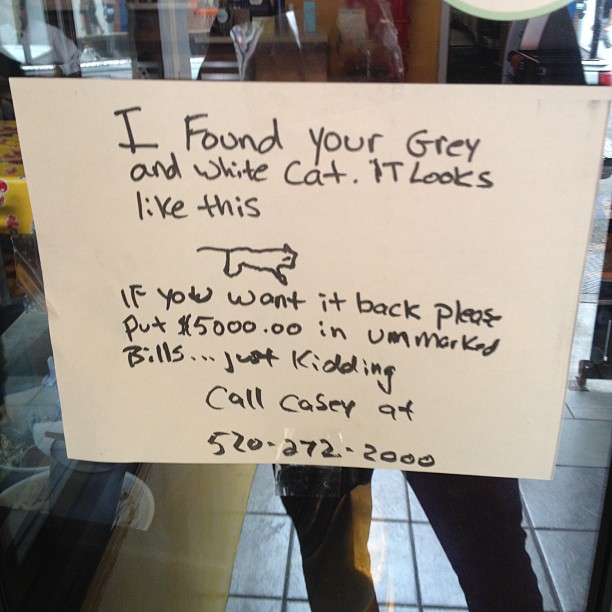 I Found your Grey
and white Cat. IT Looks
like this
IF you want it back please
put $5000.00 in unmarked
Bills... just kidding
Call Casey at
520-272-2000